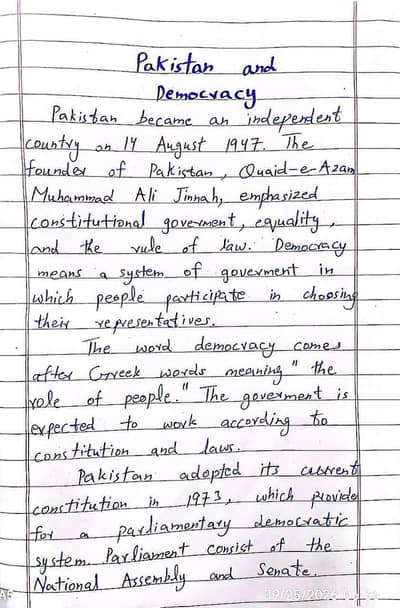 Pakistan and
Democracy
Pakistan became an independent
country on 14 August 1947. The
founder of Pakistan, Quaid-e-Azam
Muhammad Ali Jinnah, emphasized
constitutional goverment, equality,
and the rule of law. Democracy
means a system of goverment in
which people participate in choosing
their representatives.
The word democracy comes
after Greek words meaning "the
role of people." The goverment is
expected to work according to
constitution and laws.
Pakistan adopted its current
constitution in 1973, which provide
for a parliamentary democratic
system. Parliament consist of the
National Assembly and Senate.